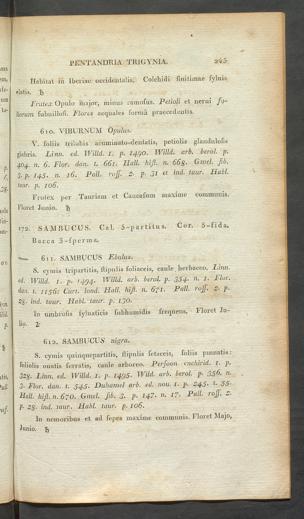 PENTANDRIA TRIGYNIA. 245
Habitat in Iberiae occidentalis, Colchidi finitimae sylvis
elatis. ♄
Frutex Opulo major, minus ramosus. Petioli et nervi fo-
liorum subvillosi. Flores aequales formâ praecedentis.
610. VIBURNUM Opulus.
V. foliis trilobis acuminato-dentatis, petiolis glandulosis
glabris. Linn. ed. Willd. 1. p. 1490. Willd. arb. berol. p.
404. n. 6. Flor. dan. t. 661. Hall. hist. n. 668. Gmel. sib.
3. p. 145. n. 16. Pall. ross. 2. p. 31 et ind. taur. Habl.
taur. p. 106.
Frutex per Tauriam et Caucasum maxime communis.
Floret Junio. ♄
172. SAMBUCUS. Cal. 5-partitus. Cor. 5-fida.
Bacca 3-sperma.
611. SAMBUCUS Ebulus.
S. cymis tripartitis, stipulis foliaceis, caule herbaceo. Linn.
ed. Willd. 1. p. 1494. Willd. arb. berol. p. 354. n. 1. Flor.
dan. t. 1156. Curt. lond. Hall. hist. n. 671. Pall. ross. 2. p.
28. ind. taur. Habl. taur. p. 130.
In umbrosis sylvaticis subhumidis frequens. Floret Ju-
lio. ♃
612. SAMBUCUS nigra.
S. cymis quinquepartitis, stipulis setaceis, foliis pinnatis:
foliolis ovatis serratis, caule arboreo. Persoon enchirid. 1. p.
329. Linn. ed. Willd. 1. p. 1495. Willd. arb. berol. p. 356. n.
3. Flor. dan. t. 545. Duhamel arb. ed. nov. 1. p. 245. t. 55.
Hall. hist. n. 670. Gmel. sib. 3. p. 147. n. 17. Pall. ross. 2.
p. 29. ind. taur. Habl. taur. p. 106.
In nemoribus et ad sepes maxime communis. Floret Majo,
Junio. ♄